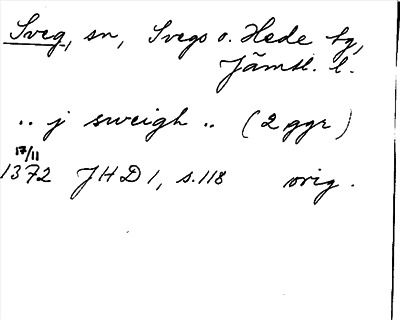 Sveg, sn, Svegs o. Hede tg,
Jämtl. l.
.. j sweigh .. (2 ggr)
17/11
1372 JHD 1, s.118 orig.